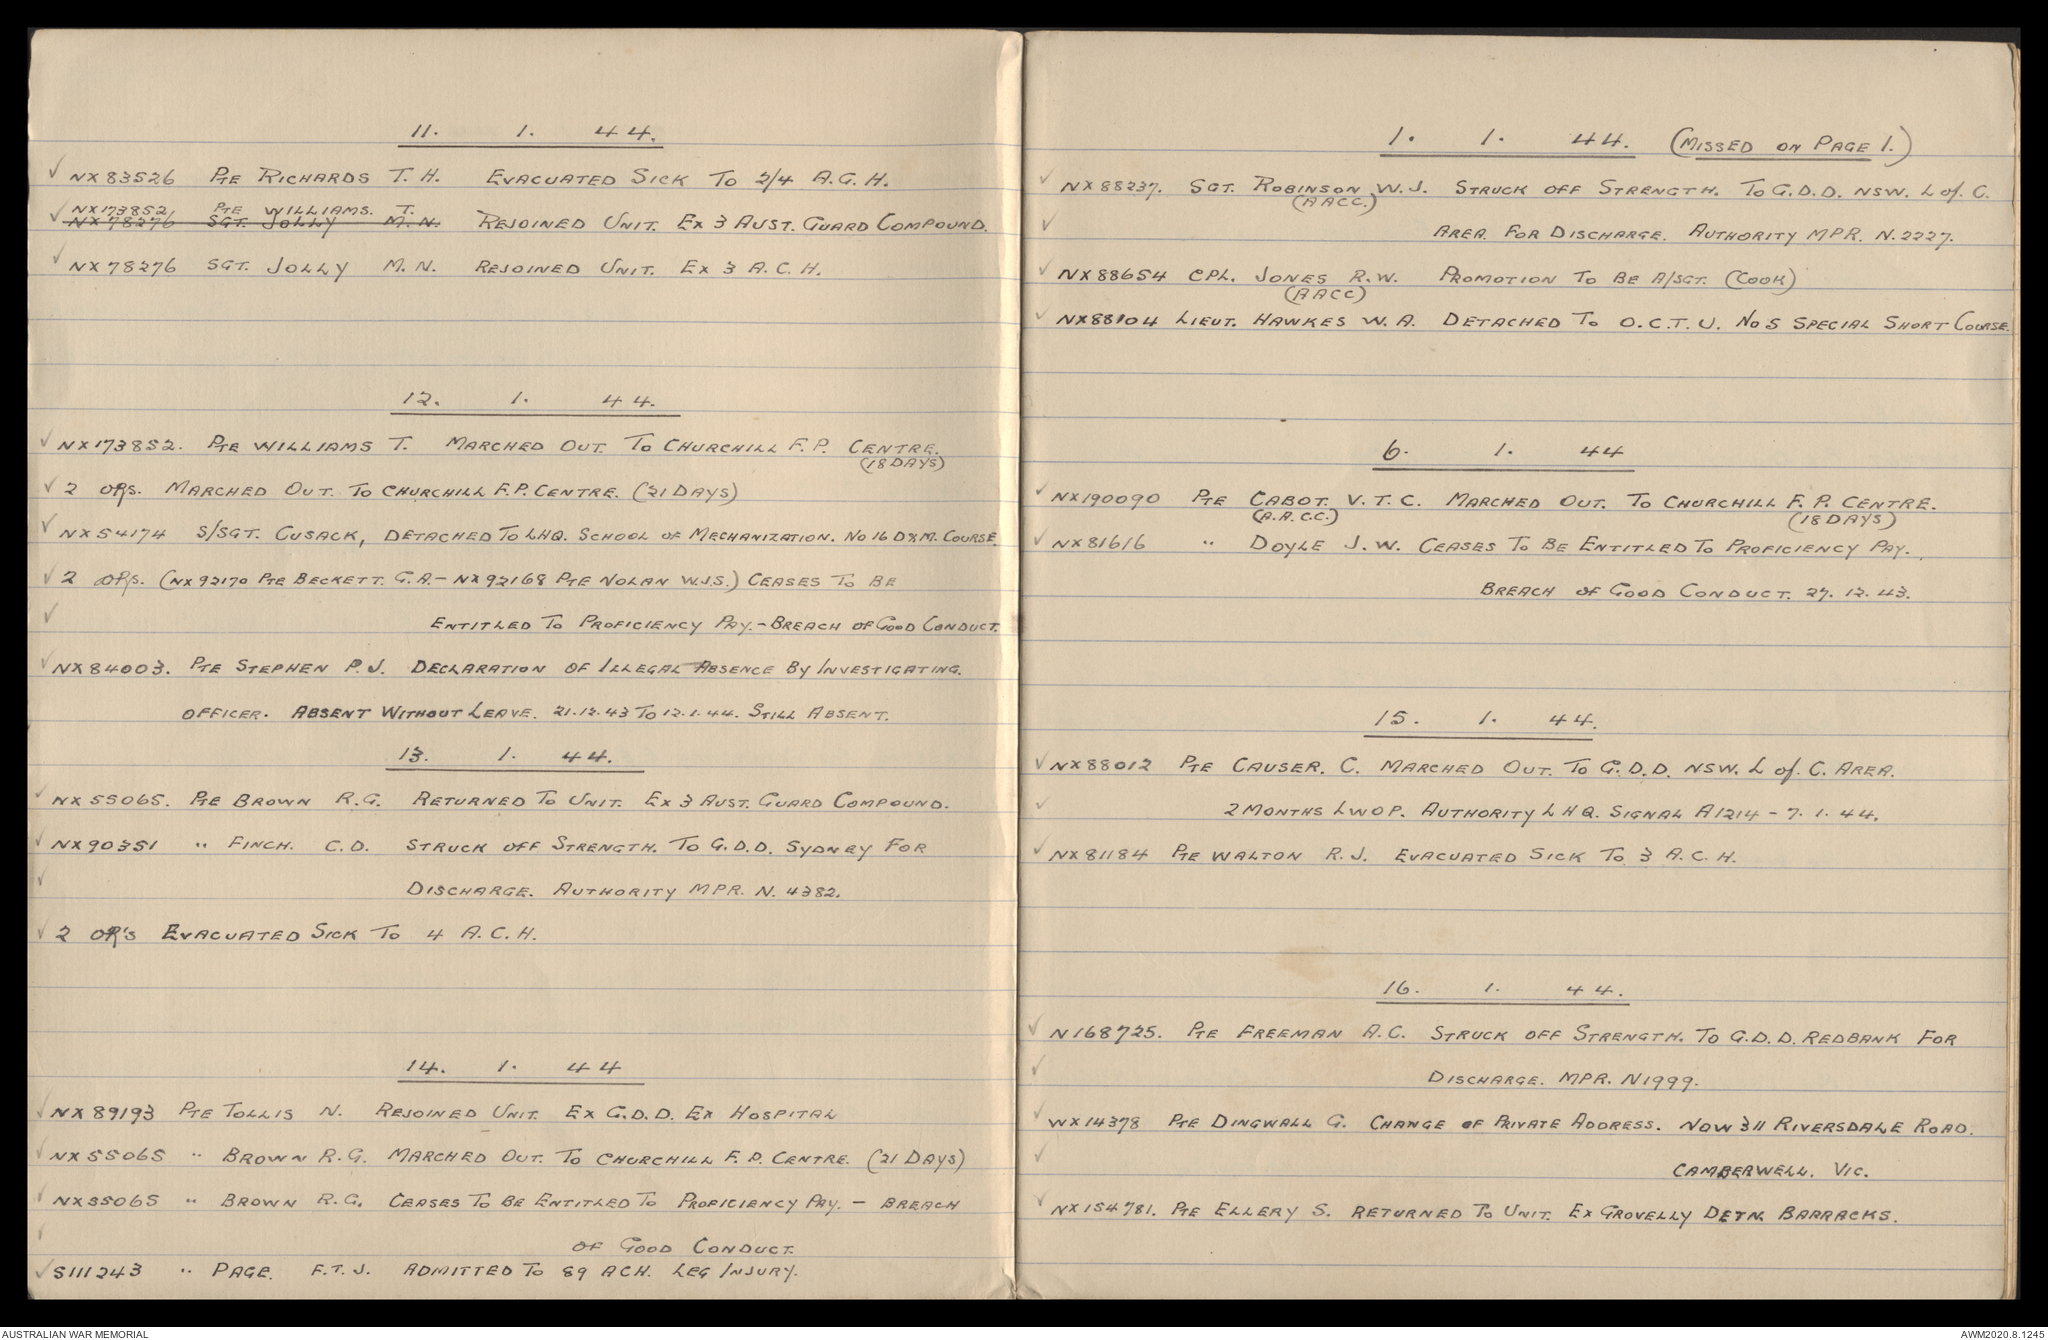 11. 1. 44.
✓ NX83526 Pte RICHARDS T. H. EVACUATED SICK TO 2/4 A.G.H.
✓ NX173852. Pte WILLIAMS. T.
NX78276 SGT. JOLLY M.N. REJOINED UNIT. EX 3 AUST. GUARD COMPOUND.
✓ NX78276 SGT. JOLLY M.N. REJOINED UNIT. EX 3 A.C.H.
12. 1. 44.
✓ NX173852. Pte WILLIAMS T. MARCHED OUT. TO CHURCHILL F.P. CENTRE.
(18 DAYS)
✓ 2 ORs. MARCHED OUT. TO CHURCHILL F.P. CENTRE. (21 DAYS)
✓ NX54174 S/SGT. CUSACK, DETACHED TO LHQ. SCHOOL OF MECHANIZATION. No 16 D&M. COURSE.
✓ 2 ORs. (NX92170 Pte BECKETT. G.A. - NX92168 Pte NOLAN W.J.S.) CEASES TO BE
✓ ENTITLED TO PROFICIENCY PAY. - BREACH OF GOOD CONDUCT.
✓ NX84003. Pte STEPHEN P.J. DECLARATION OF ILLEGAL ABSENCE BY INVESTIGATING.
OFFICER. ABSENT WITHOUT LEAVE. 21.12.43 TO 12.1.44. STILL ABSENT.
13. 1. 44.
✓ NX55065. Pte BROWN R.G. RETURNED TO UNIT. EX 3 AUST. GUARD COMPOUND.
✓ NX90351 " FINCH. C.D. STRUCK OFF STRENGTH. TO G.D.D. SYDNEY FOR
✓ DISCHARGE. AUTHORITY MPR. N. 4382.
✓ 2 OR'S EVACUATED SICK TO 4 A.C.H.
14. 1. 44
✓ NX89193 Pte TOLLIS N. REJOINED UNIT. EX G.D.D. EX HOSPITAL
✓ NX55065 " BROWN R.G. MARCHED OUT. TO CHURCHILL F.P. CENTRE. (21 DAYS)
✓ NX55065 " BROWN R.G. CEASES TO BE ENTITLED TO PROFICIENCY PAY. - BREACH
✓ OF GOOD CONDUCT.
✓ S111243 " PAGE. F.T.J. ADMITTED TO 89 ACH. LEG INJURY.
1. 1. 44. (MISSED ON PAGE 1.)
✓ NX88237. SGT. ROBINSON W.J. STRUCK OFF STRENGTH. TO G.D.D. NSW. L of C.
(AACC.)
✓ AREA. FOR DISCHARGE. AUTHORITY MPR. N.2227.
✓ NX88654 CPL. JONES R.W. PROMOTION TO BE A/SGT. (COOK)
(AACC)
✓ NX88104 LIEUT. HAWKES W.A. DETACHED TO O.C.T.U. No 5 SPECIAL SHORT COURSE.
6. 1. 44
✓ NX190090 Pte CABOT. V.T.C. MARCHED OUT. TO CHURCHILL F.P. CENTRE.
(A.A.C.C.) (18 DAYS)
✓ NX81616 " DOYLE J.W. CEASES TO BE ENTITLED TO PROFICIENCY PAY.
BREACH OF GOOD CONDUCT. 27.12.43.
15. 1. 44.
✓ NX88012 Pte CAUSER. C. MARCHED OUT. TO G.D.D. NSW. L of. C. AREA.
✓ 2 MONTHS LWOP. AUTHORITY LHQ. SIGNAL A1214 - 7.1.44.
✓ NX81184 Pte WALTON R.J. EVACUATED SICK TO 3 A.C.H.
16. 1. 44.
✓ N168725. Pte FREEMAN A.C. STRUCK OFF STRENGTH. TO G.D.D. REDBANK FOR
✓ DISCHARGE. MPR. N1999.
✓ WX14378 Pte DINGWALL G. CHANGE OF PRIVATE ADDRESS. NOW 311 RIVERSDALE ROAD.
✓ CAMBERWELL. VIC.
✓ NX154781. Pte ELLERY S. RETURNED TO UNIT. EX GROVELLY DETN. BARRACKS.
AUSTRALIAN WAR MEMORIAL
AWM2020.8.1245